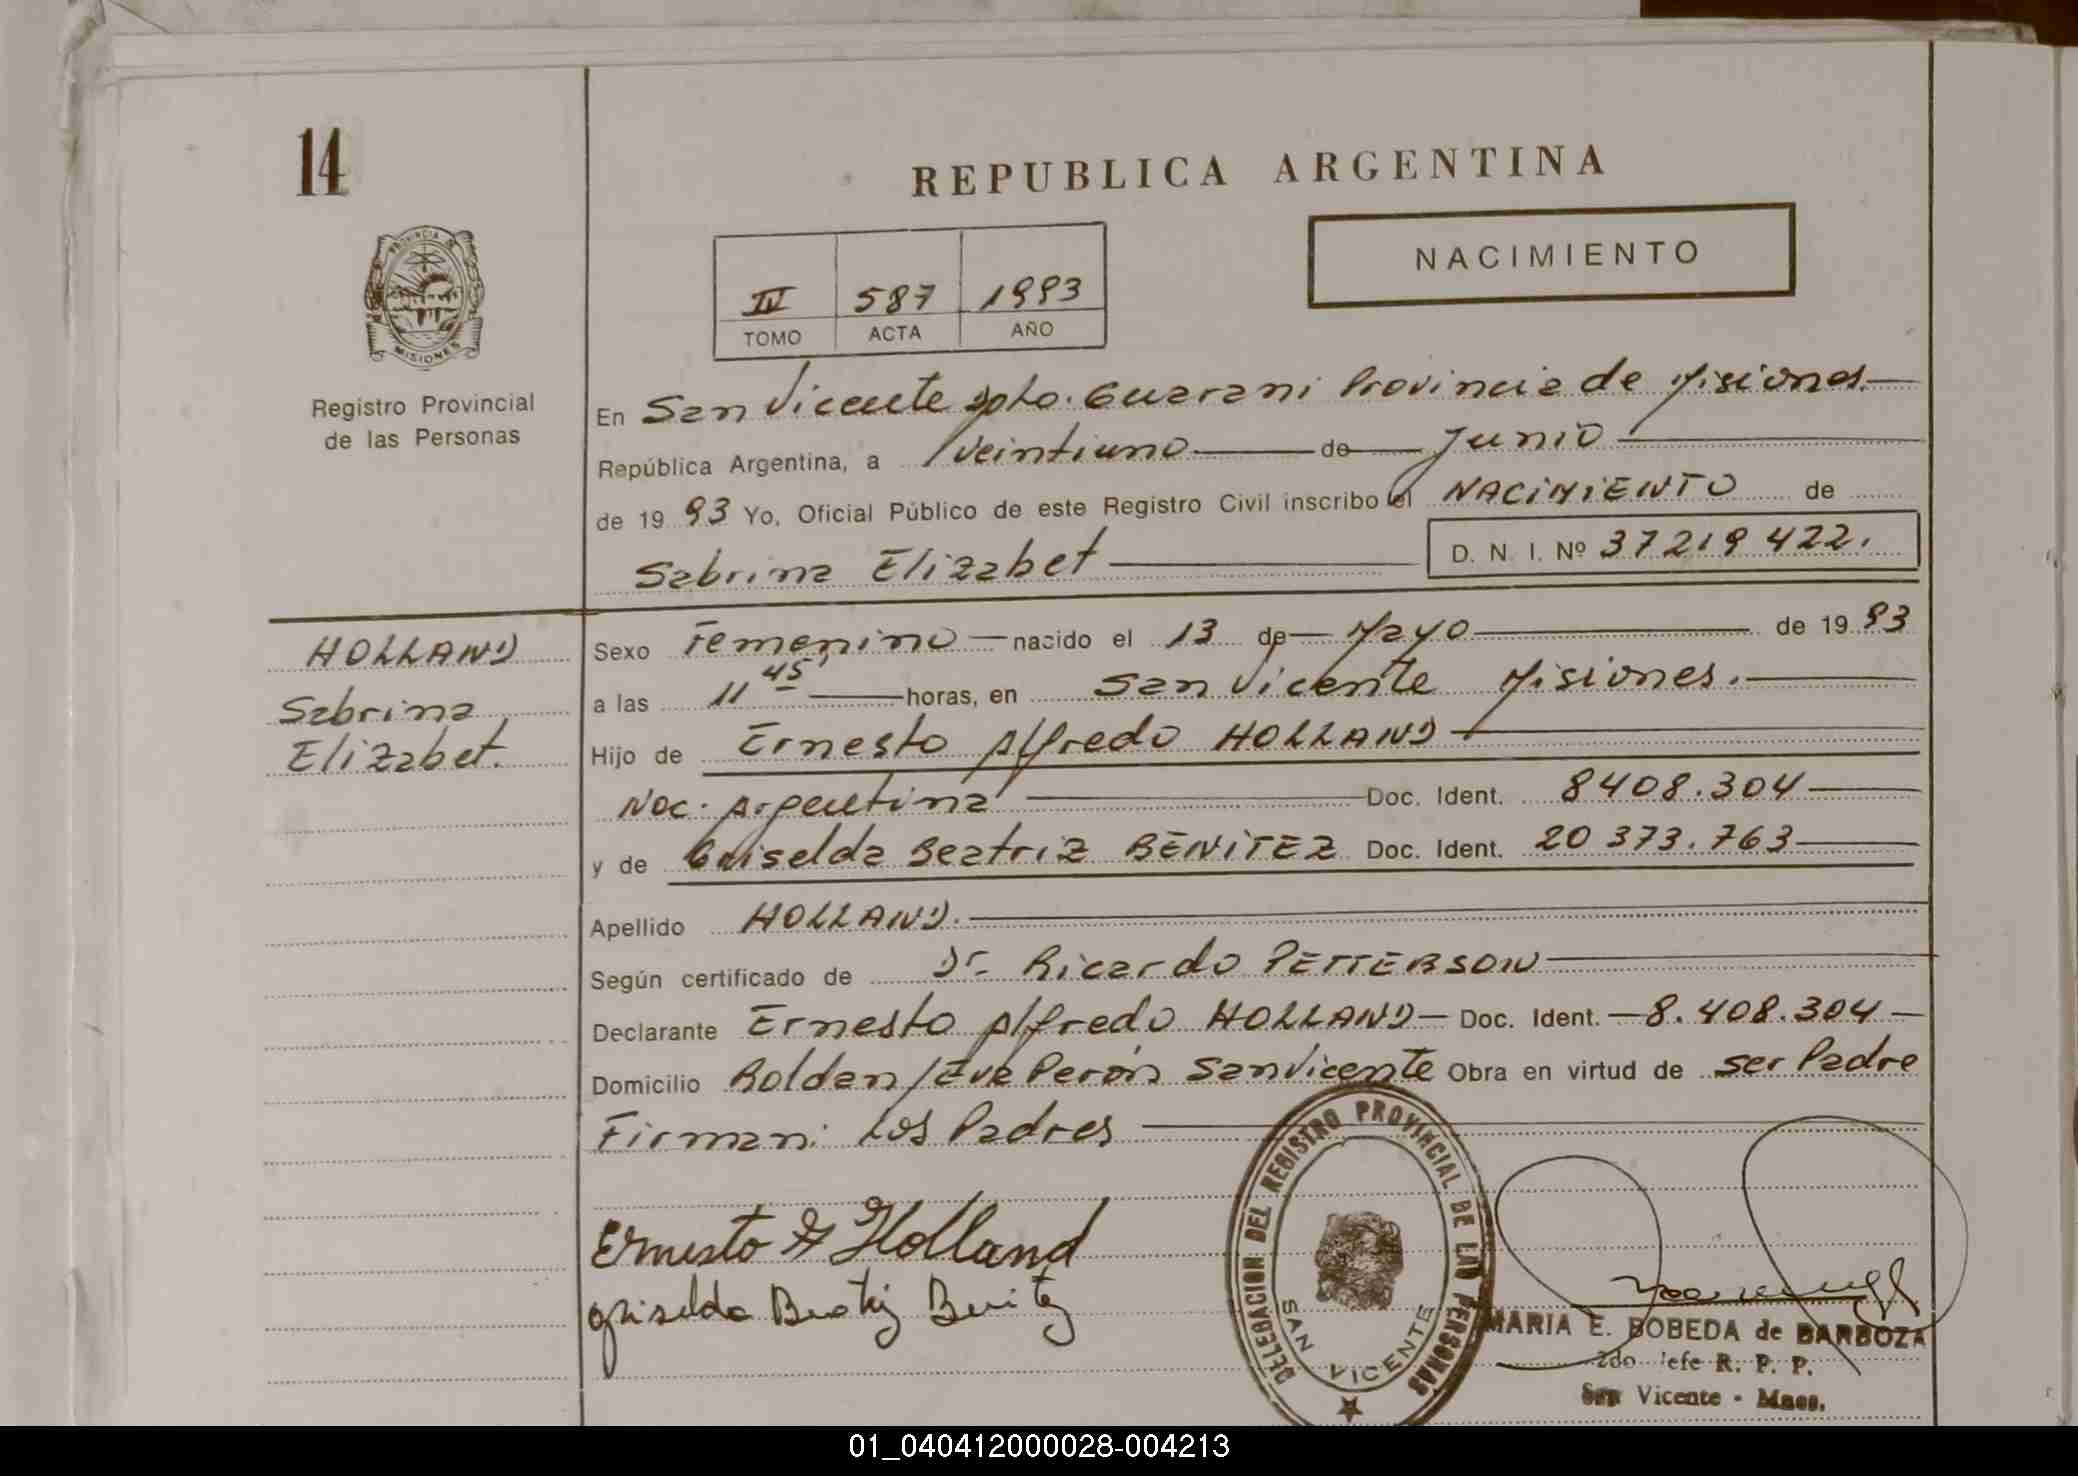 14
REPUBLICA ARGENTINA
NACIMIENTO
IV 587 1993
TOMO ACTA AÑO
PROVINCIA DE
MISIONES
Registro Provincial
de las Personas
En San Vicente Dpto. Guarani Provincia de Misiones.
República Argentina, a veintiuno de Junio
de 1993 Yo, Oficial Público de este Registro Civil inscribo el NACIMIENTO de
Sabrina Elizabet D. N. I. Nº 37219422.
HOLLAND
Sabrina
Elizabet.
Sexo Femenino nacido el 13 de Mayo de 1993
a las 11 45 horas, en San Vicente Misiones.
Hijo de Ernesto Alfredo HOLLAND
Nac. Argentina Doc. Ident. 8408.304
y de Griselda Beatriz BENITEZ Doc. Ident. 20 373.763
Apellido HOLLAND.
Según certificado de Dr. Ricardo PETTERSON
Declarante Ernesto Alfredo HOLLAND Doc. Ident. 8.408.304
Domicilio Roldan/Eva Perón San Vicente Obra en virtud de ser Padre
Firman: Los Padres
Ernesto A Holland
Griselda Beatriz Benitez
DELEGACION DEL REGISTRO PROVINCIAL DE LAS PERSONAS
SAN VICENTE
MARIA E. BOBEDA de BARBOZA
2do Jefe R. P. P.
San Vicente - Mnes.
01_040412000028-004213